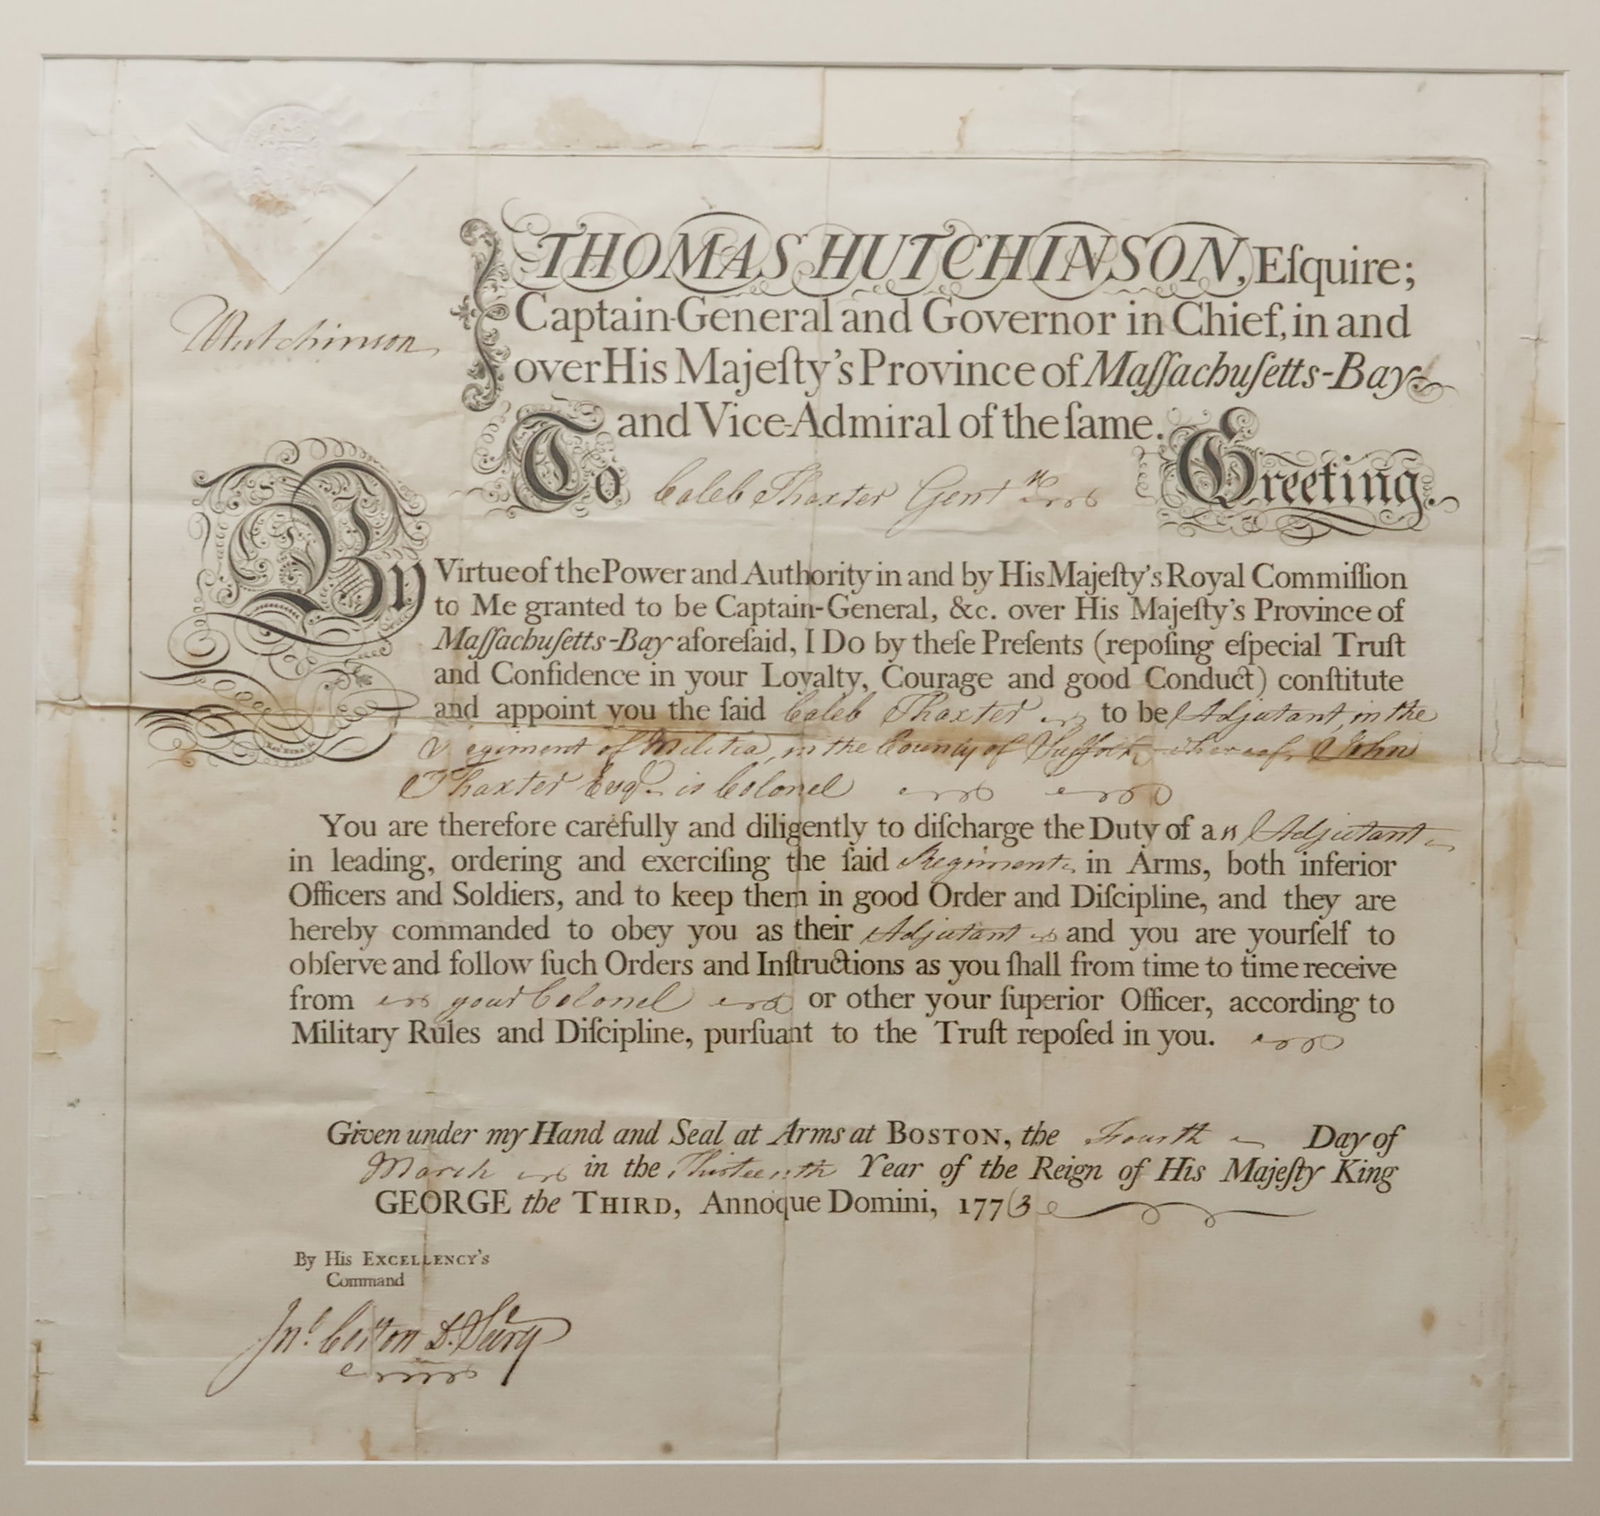 THOMAS HUTCHINSON, Eſquire;
Captain-General and Governor in Chief, in and
Hutchinson
over His Majeſty's Province of Maſſachuſetts-Bay
and Vice-Admiral of the ſame.
To Caleb Thaxter Gent Greeting.
By Virtue of the Power and Authority in and by His Majeſty's Royal Commiſſion
to Me granted to be Captain-General, &c. over His Majeſty's Province of
Maſſachuſetts-Bay aforeſaid, I Do by theſe Preſents (repoſing eſpecial Truſt
and Confidence in your Loyalty, Courage and good Conduct) conſtitute
and appoint you the ſaid Caleb Thaxter to be Adjutant, in the
Regiment of Militia, in the County of Suffolk, whereof John
Thaxter Esqr. is Colonel
You are therefore carefully and diligently to diſcharge the Duty of an Adjutant
in leading, ordering and exerciſing the ſaid Regiment in Arms, both inferior
Officers and Soldiers, and to keep them in good Order and Diſcipline, and they are
hereby commanded to obey you as their Adjutant and you are yourſelf to
obſerve and follow ſuch Orders and Inſtructions as you ſhall from time to time receive
from your Colonel or other your ſuperior Officer, according to
Military Rules and Diſcipline, purſuant to the Truſt repoſed in you.
Given under my Hand and Seal at Arms at BOSTON, the Fourth Day of
March in the Thirteenth Year of the Reign of His Majeſty King
GEORGE the THIRD, Annoque Domini, 1773
By His EXCELLENCY'S
Command
Jno. Cotton D. Secry